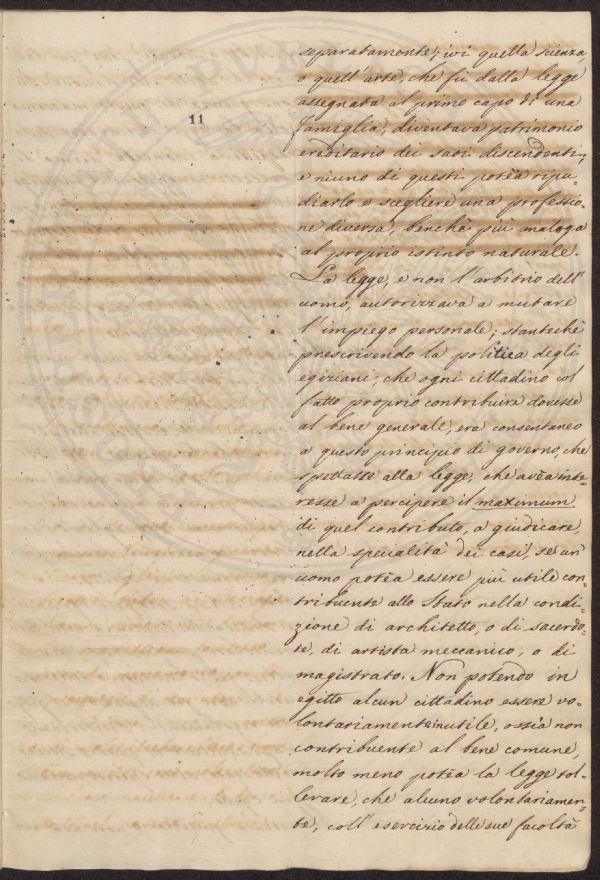 11
separatamente; ivi quella scienza,
o quell'arte, che fù dalla legge
assegnata al primo capo di una
famiglia, diventava patrimonio
ereditario dei suoi discendenti,
e niuno di questi potèa ripu=
diarlo o scegliere una professio=
ne diversa, benchè più analoga
al proprio istinto naturale.
La legge, e non l'arbitrio dell'
uomo, autorizzava a mutare
l'impiego personale; stantechè
prescrivendo la politica degli
egiziani, che ogni cittadino col
fatto proprio contribuire dovesse
al bene generale, era consentaneo
a questo principio di governo, che
spettasse alla legge, che avèa inte=
resse a percipere il maximum
di quel contributo, a giudicare,
nella specialità dei casi, se un'
uomo potèa essere più utile con=
tribuente allo Stato nella condi=
zione di architetto, o di sacerdo=
te, di artista meccanico, o di
magistrato. Non potendo in
egitto alcun cittadino essere vo=
lontariamente inutile, ossia non
contribuente al bene comune,
molto meno potèa la legge tol=
lerare, che alcuno volontariamen=
te, coll'esercizio delle sue facoltà